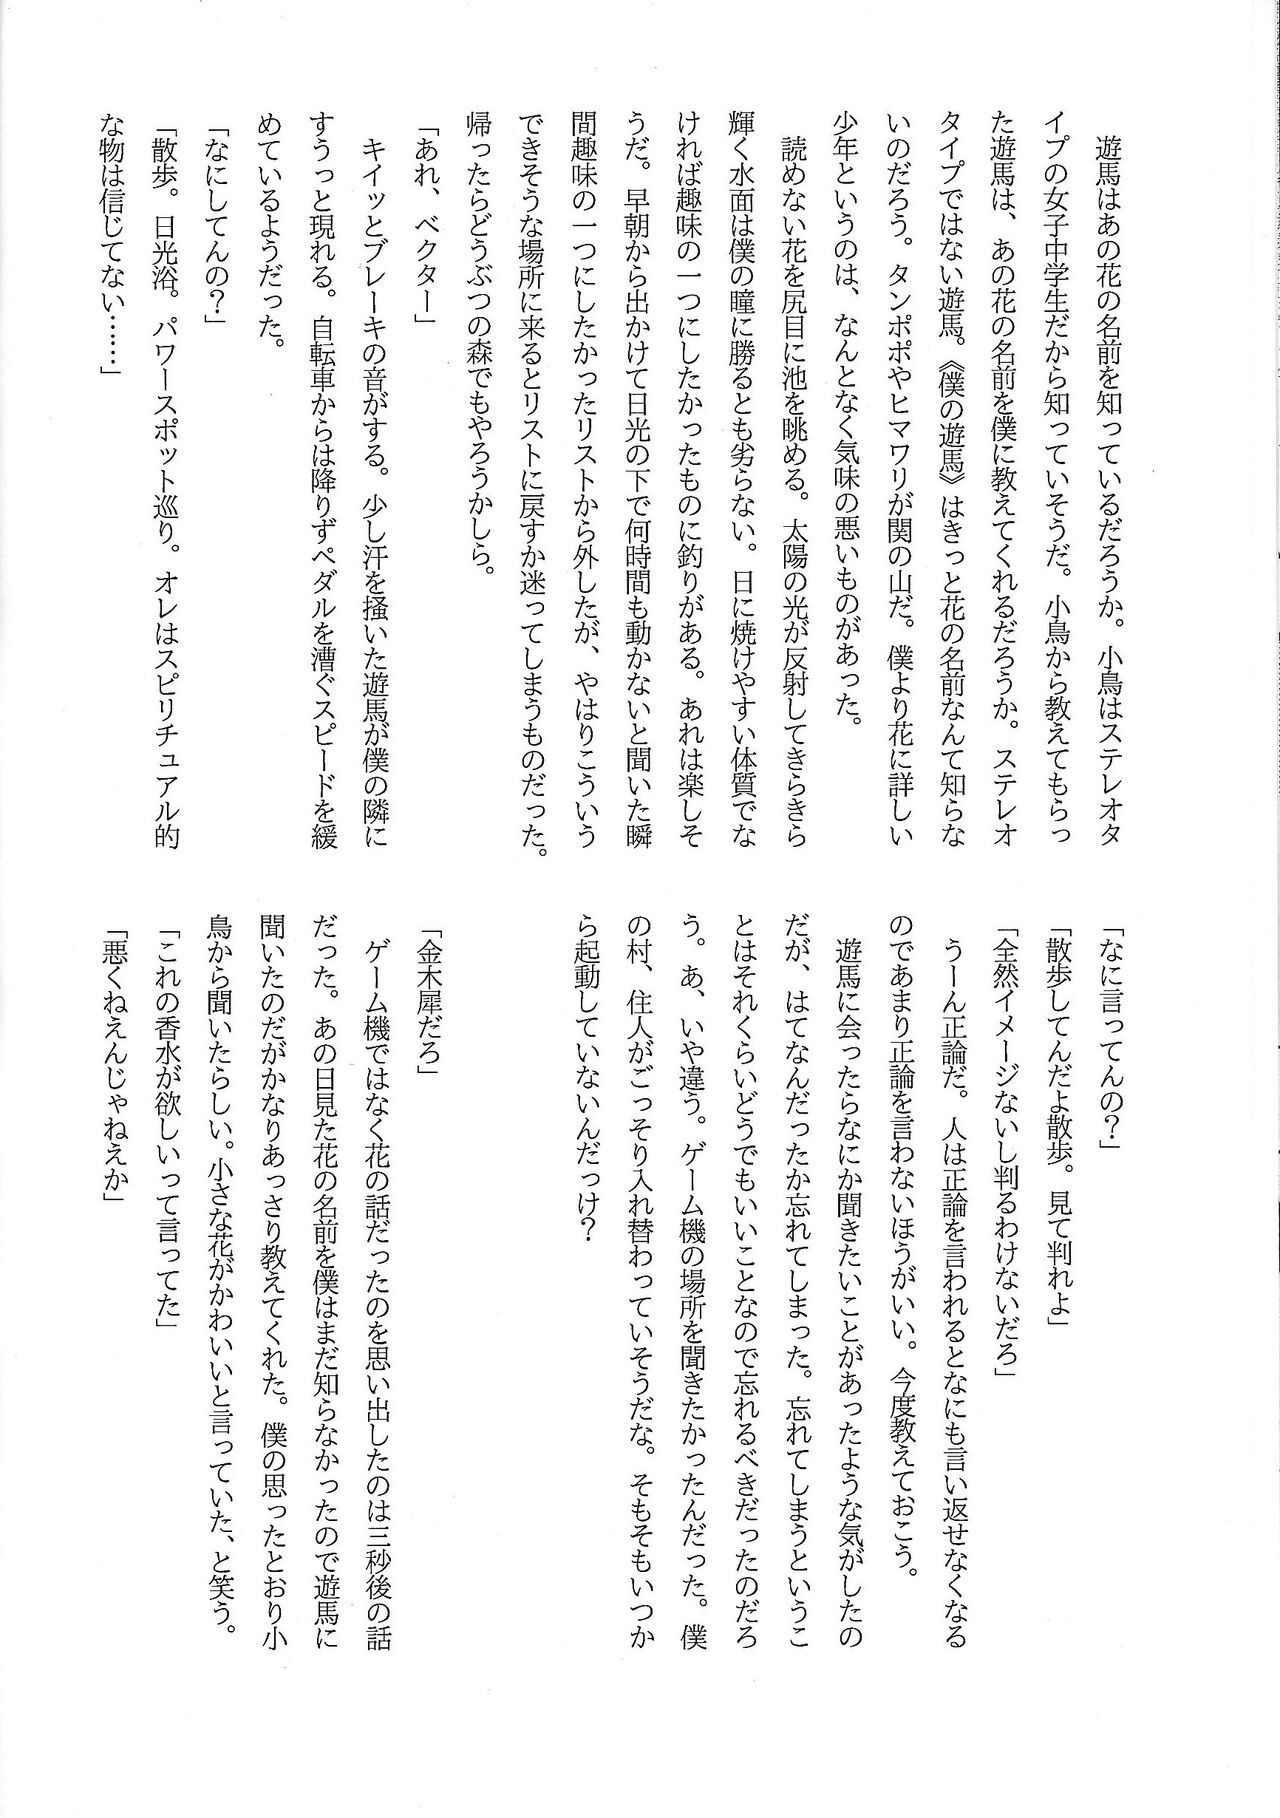 遊馬はあの花の名前を知っているだろうか。小鳥はステレオタ
イプの女子中学生だから知っていそうだ。小鳥から教えてもらっ
た遊馬は、あの花の名前を僕に教えてくれるだろうか。ステレオ
タイプではない遊馬。《僕の遊馬》はきっと花の名前なんて知らな
いのだろう。タンポポやヒマワリが関の山だ。僕より花に詳しい
少年というのは、なんとなく気味の悪いものがあった。
読めない花を尻目に池を眺める。太陽の光が反射してきらきら
輝く水面は僕の瞳に勝るとも劣らない。日に焼けやすい体質でな
ければ趣味の一つにしたかったものに釣りがある。あれは楽しそ
うだ。早朝から出かけて日光の下で何時間も動かないと聞いた瞬
間趣味の一つにしたかったリストから外したが、やはりこういう
できそうな場所に来るとリストに戻すか迷ってしまうものだった。
帰ったらどうぶつの森でもやろうかしら。
「あれ、ベクター」
キイッとブレーキの音がする。少し汗を掻いた遊馬が僕の隣に
すうっと現れる。自転車からは降りずペダルを漕ぐスピードを緩
めているようだった。
「なにしてんの？」
「散歩。日光浴。パワースポット巡り。オレはスピリチュアル的
な物は信じてない……」
「なに言ってんの？」
「散歩してんだよ散歩。見て判れよ」
「全然イメージないし判るわけないだろ」
うーん正論だ。人は正論を言われるとなにも言い返せなくなる
のであまり正論を言わないほうがいい。今度教えておこう。
遊馬に会ったらなにか聞きたいことがあったような気がしたの
だが、はてなんだったか忘れてしまった。忘れてしまうというこ
とはそれくらいどうでもいいことなので忘れるべきだったのだろ
う。あ、いや違う。ゲーム機の場所を聞きたかったんだった。僕
の村、住人がごっそり入れ替わっていそうだな。そもそもいつか
ら起動していないんだっけ？
「金木犀だろ」
ゲーム機ではなく花の話だったのを思い出したのは三秒後の話
だった。あの日見た花の名前を僕はまだ知らなかったので遊馬に
聞いたのだがかなりあっさり教えてくれた。僕の思ったとおり小
鳥から聞いたらしい。小さな花がかわいいと言っていた、と笑う。
「これの香水が欲しいって言ってた」
「悪くねえんじゃねえか」